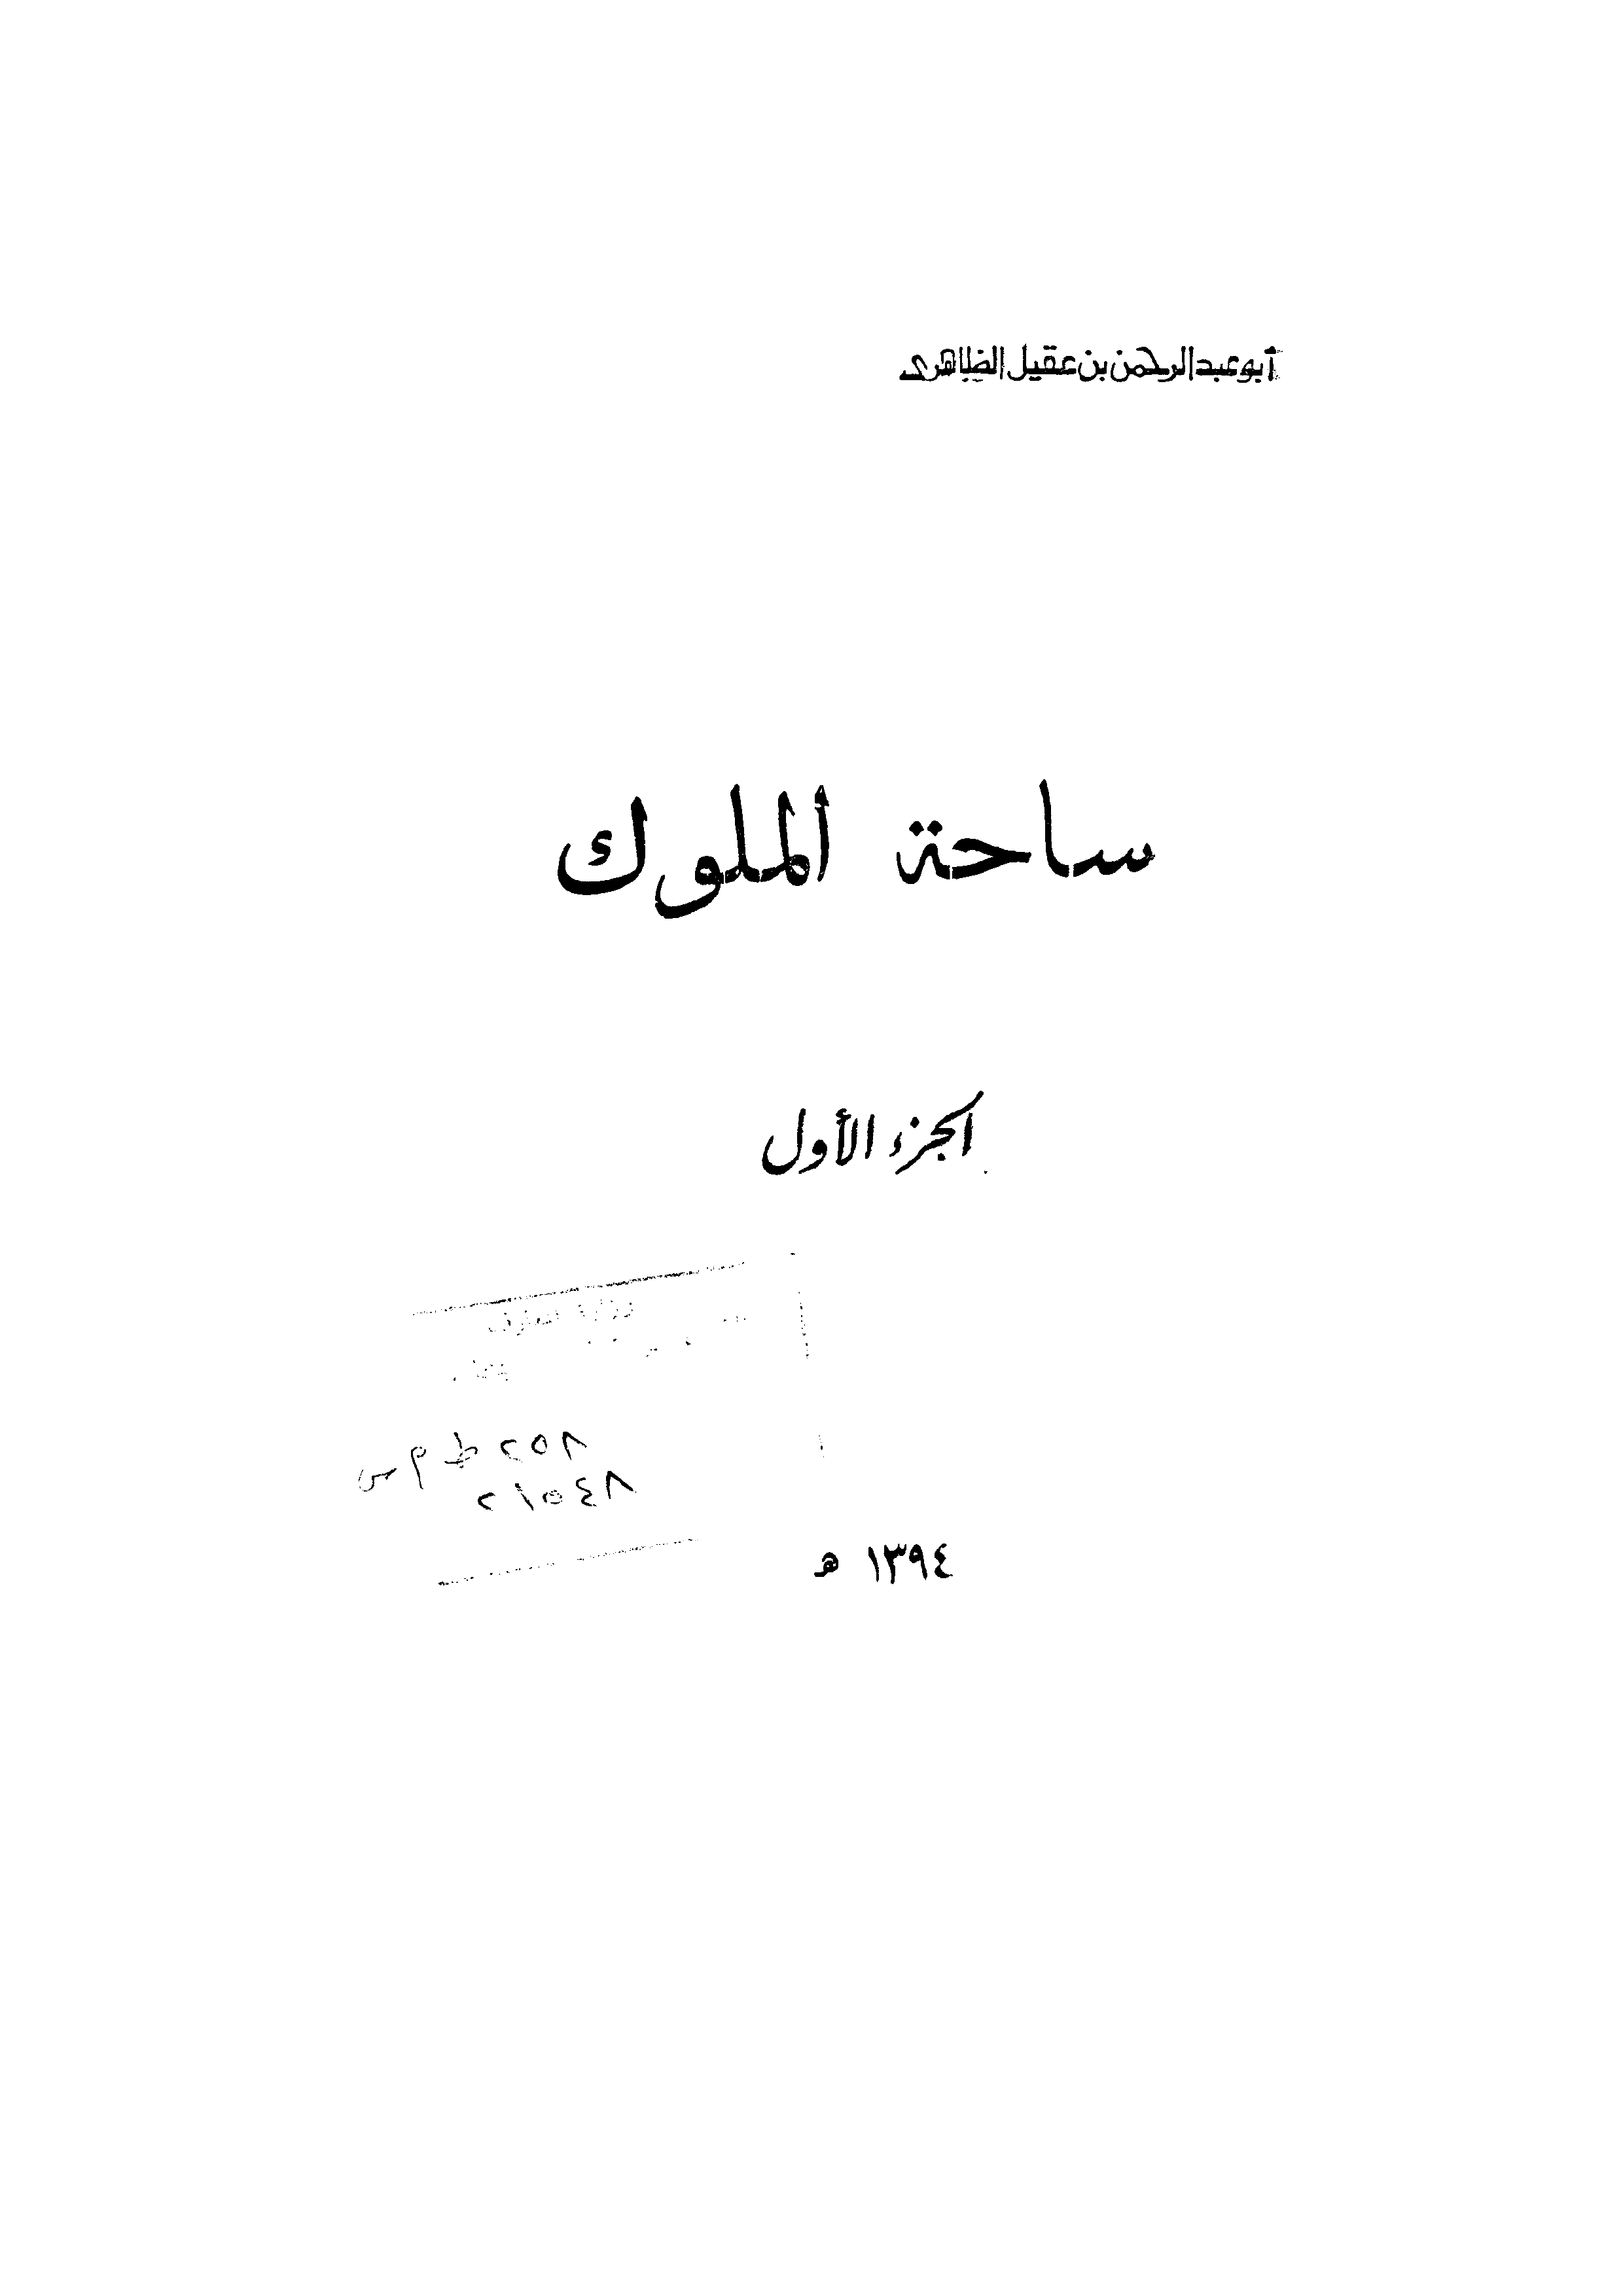 أبو عبد الرحمن بن عقيل الظاهرى
ساحة ألملوك
الجزء الأول
٨٥٢
٨٤٥١٢
١٣٩٤ هـ